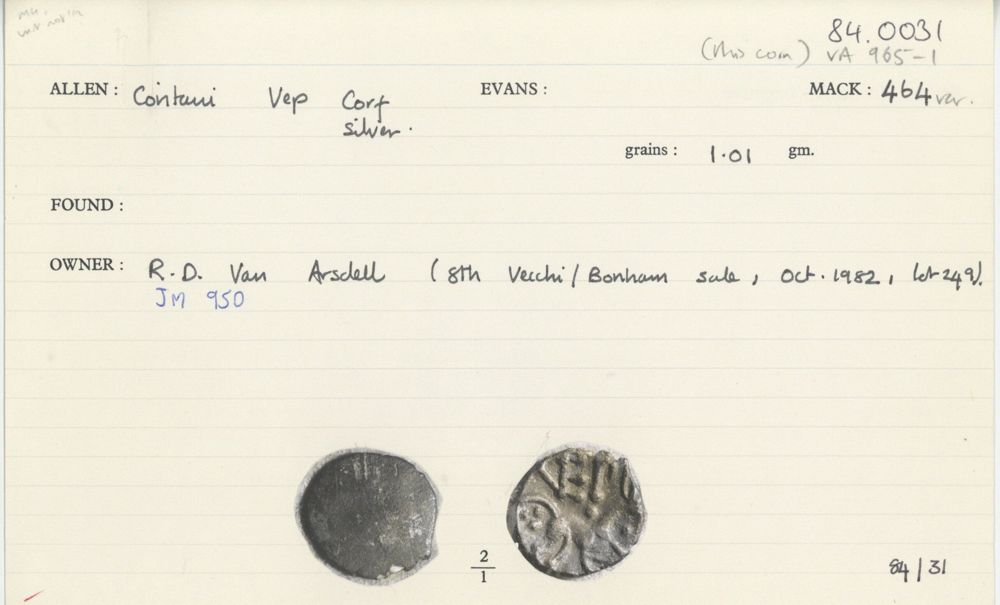 84.0031
(this coin) VA 965-1
ALLEN : Coritani Vep Corf EVANS : MACK : 464 var.
silver.
grains : 1.01 gm.
FOUND :
OWNER : R.D. Van Arsdell (8th Vecchi/Bonham sale, Oct. 1982, lot 249).
JM 950
VEP
2
1
84/31